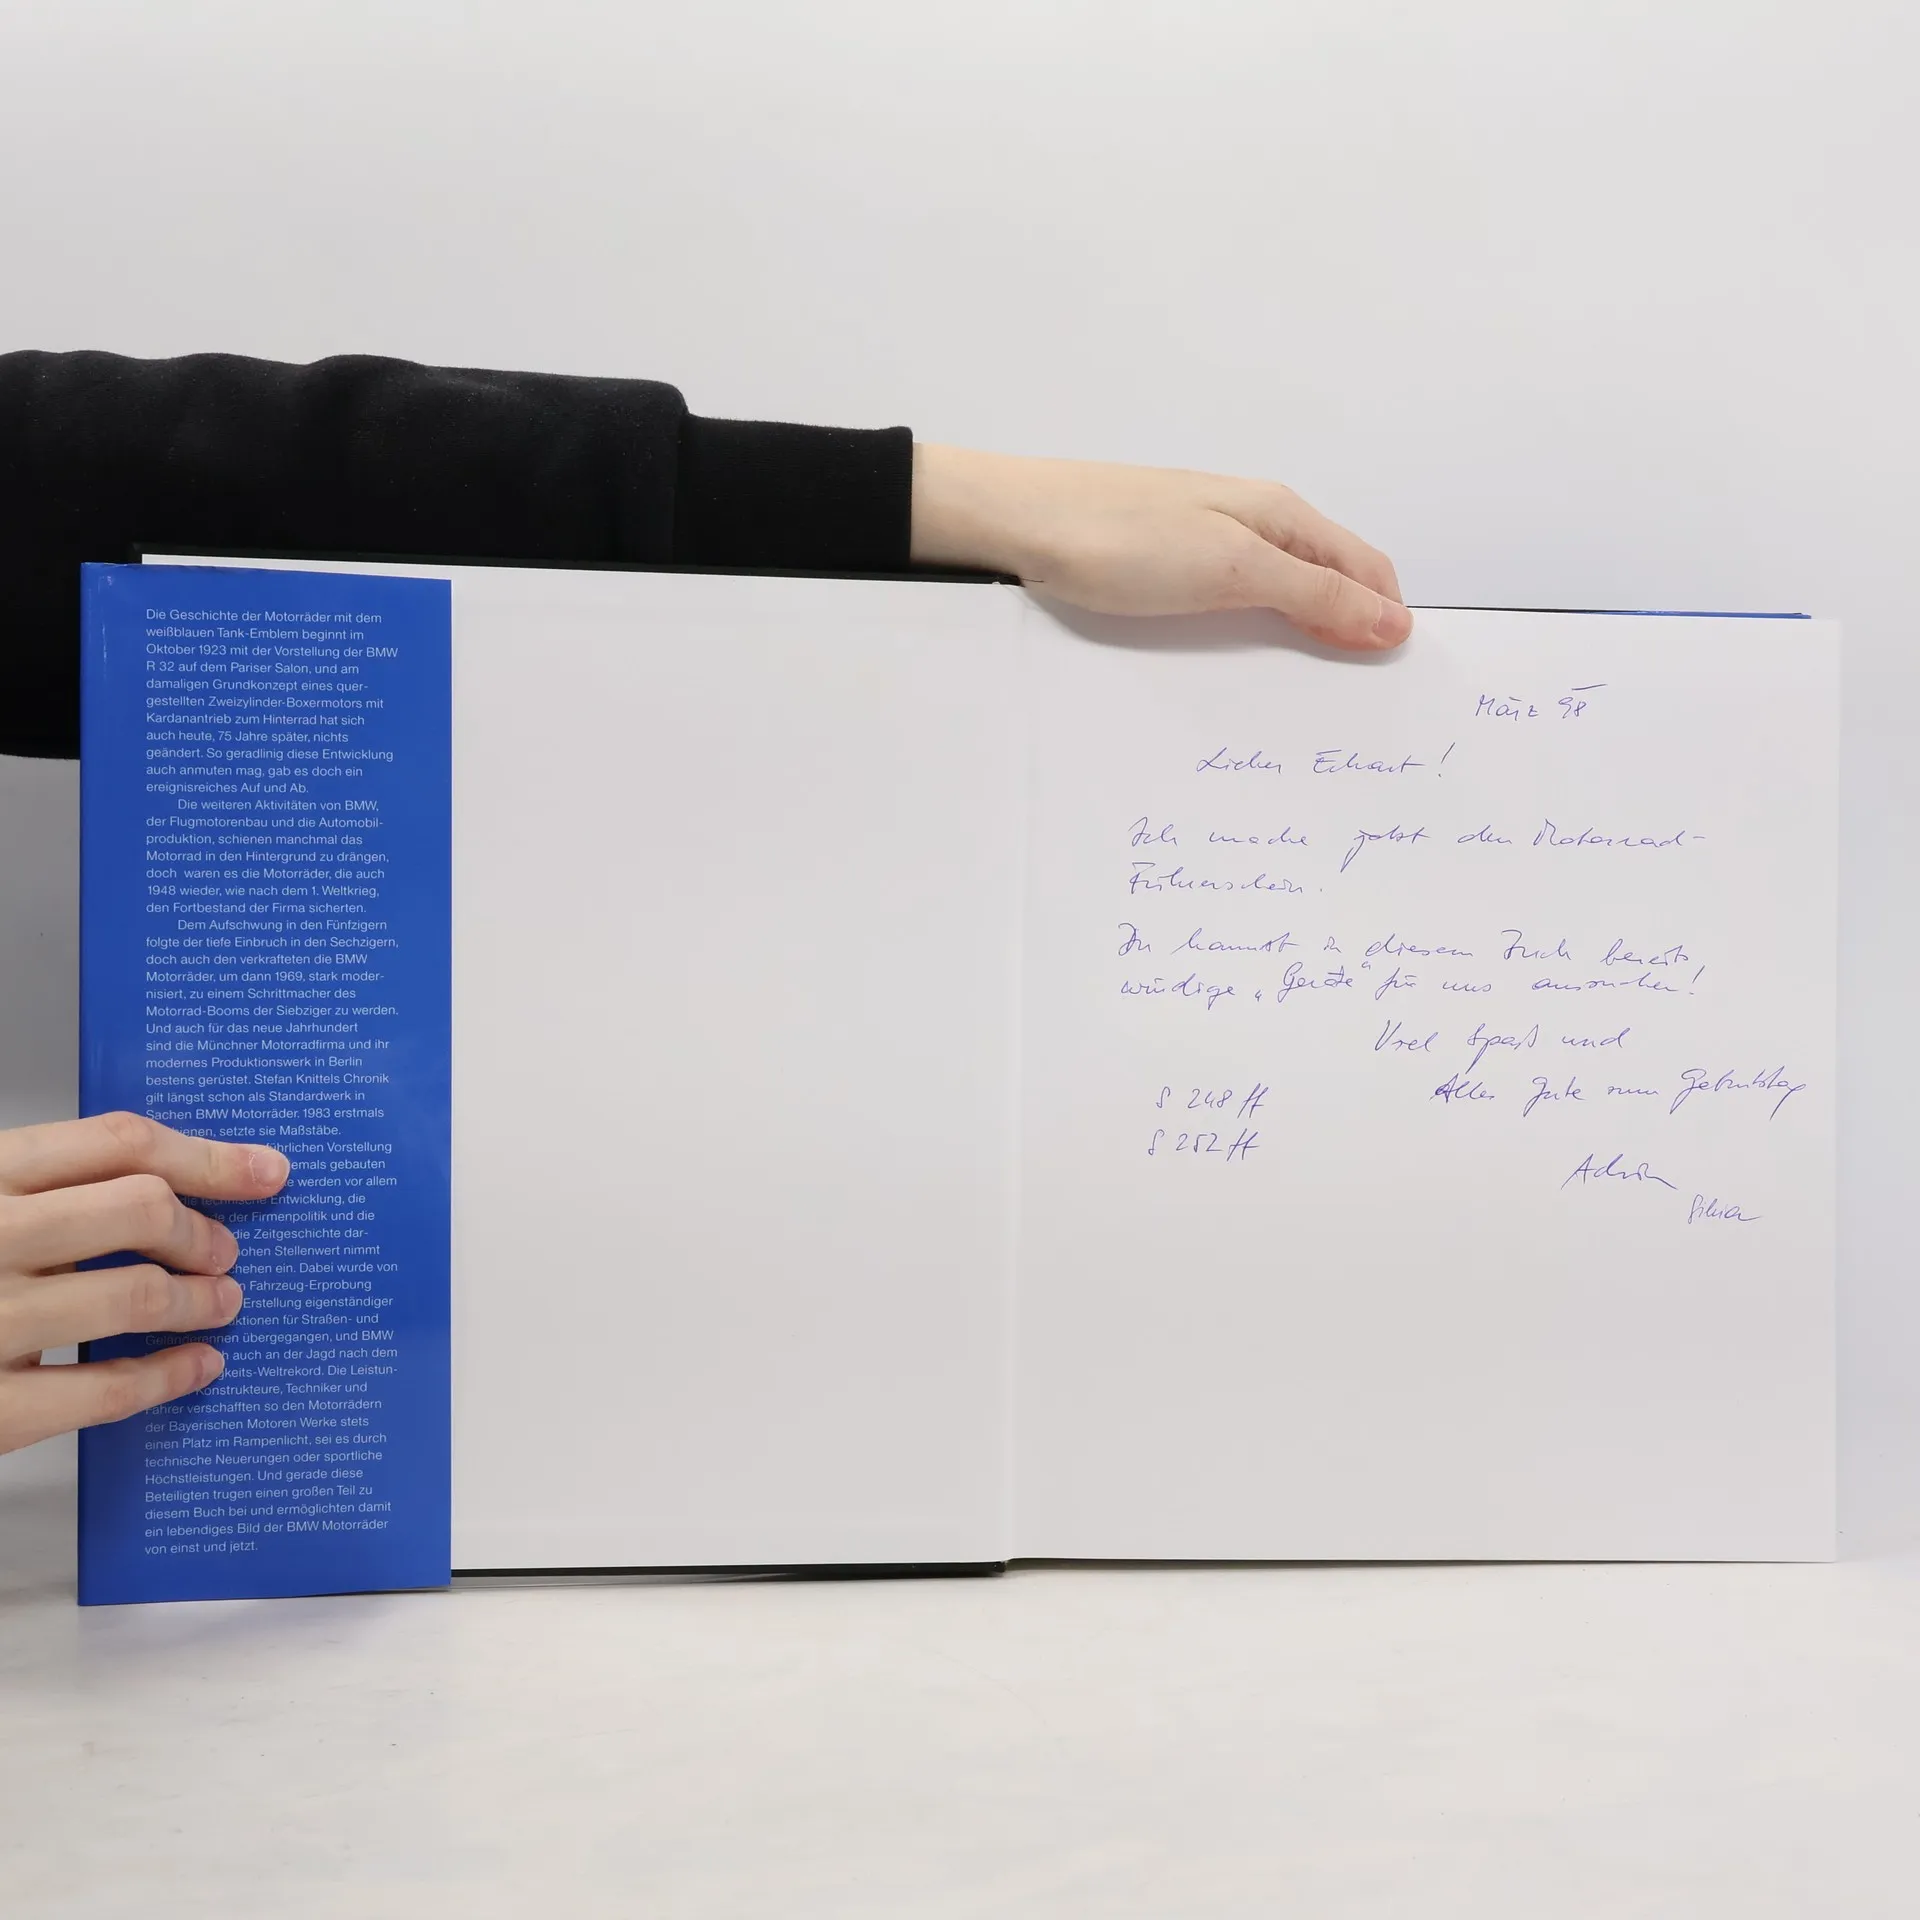 Die Geschichte der Motorräder mit dem
weißblauen Tank-Emblem beginnt im
Oktober 1923 mit der Vorstellung der BMW
R 32 auf dem Pariser Salon, und am
damaligen Grundkonzept eines quer-
gestellten Zweizylinder-Boxermotors mit
Kardanantrieb zum Hinterrad hat sich
auch heute, 75 Jahre später, nichts
geändert. So geradlinig diese Entwicklung
auch anmuten mag, gab es doch ein
ereignisreiches Auf und Ab.
Die weiteren Aktivitäten von BMW,
der Flugmotorenbau und die Automobil-
produktion, schienen manchmal das
Motorrad in den Hintergrund zu drängen,
doch waren es die Motorräder, die auch
1948 wieder, wie nach dem 1. Weltkrieg,
den Fortbestand der Firma sicherten.
Dem Aufschwung in den Fünfzigern
folgte der tiefe Einbruch in den Sechzigern,
doch auch den verkrafteten die BMW
Motorräder, um dann 1969, stark moder-
nisiert, zu einem Schrittmacher des
Motorrad-Booms der Siebziger zu werden.
Und auch für das neue Jahrhundert
sind die Münchner Motorradfirma und ihr
modernes Produktionswerk in Berlin
bestens gerüstet. Stefan Knittels Chronik
gilt längst schon als Standardwerk in
Sachen BMW Motorräder. 1983 erstmals
setzte sie Maßstäbe.
Vorstellung
gebauten
werden vor allem
die technische Entwicklung, die
der Firmenpolitik und die
die Zeitgeschichte dar-
hohen Stellenwert nimmt
ein. Dabei wurde von
Fahrzeug-Erprobung
Erstellung eigenständiger
für Straßen- und
Geländerennen übergegangen, und BMW
auch an der Jagd nach dem
Die Leistun-
Konstrukteure, Techniker und
Fahrer verschafften so den Motorrädern
der Bayerischen Motoren Werke stets
einen Platz im Rampenlicht, sei es durch
technische Neuerungen oder sportliche
Höchstleistungen. Und gerade diese
Beteiligten trugen einen großen Teil zu
diesem Buch bei und ermöglichten damit
ein lebendiges Bild der BMW Motorräder
von einst und jetzt.
März 98
Lieber Eckart!
Ich mache jetzt den Motorrad-
Führerschein.
Du kannst in diesem Buch bereits
würdige „Geräte“ für uns aussuchen!
Viel Spaß und
Alles Gute zum Geburtstag
S 248 ff
S 252 ff
Adrian
Silvia